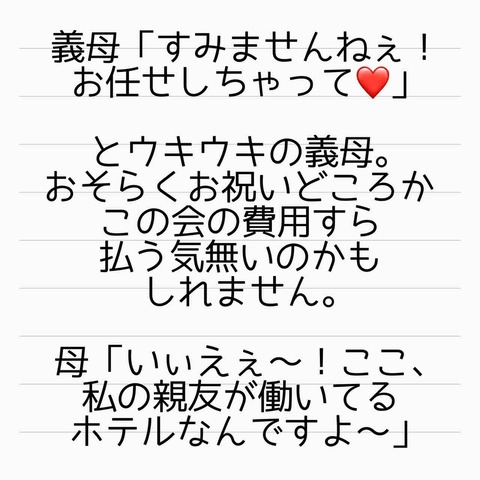 義母「すみませんねぇ！
お任せしちゃって❤️」
とウキウキの義母。
おそらくお祝いどころか
この会の費用すら
払う気無いのかも
しれません。
母「いぃえぇ〜！ここ、
私の親友が働いてる
ホテルなんですよ〜」